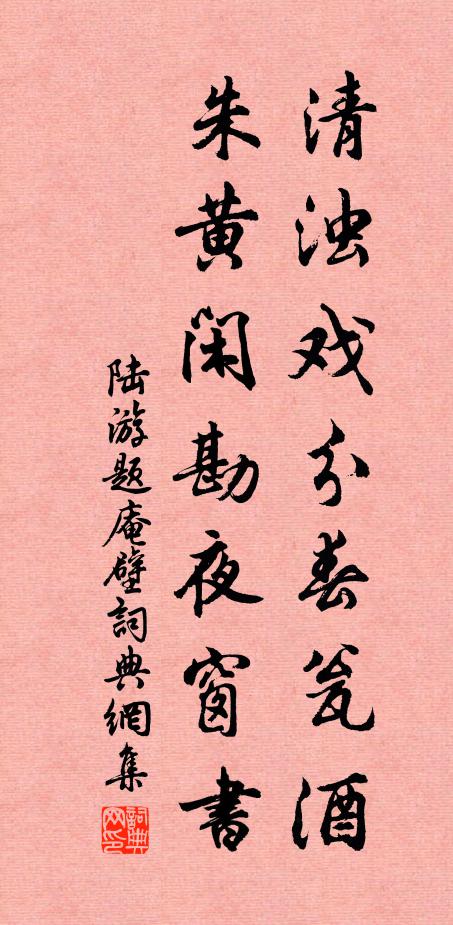 清浊戏分春瓮酒
朱黄闲勘夜窗書
陆游题庵壁詞典網集
詞典网印